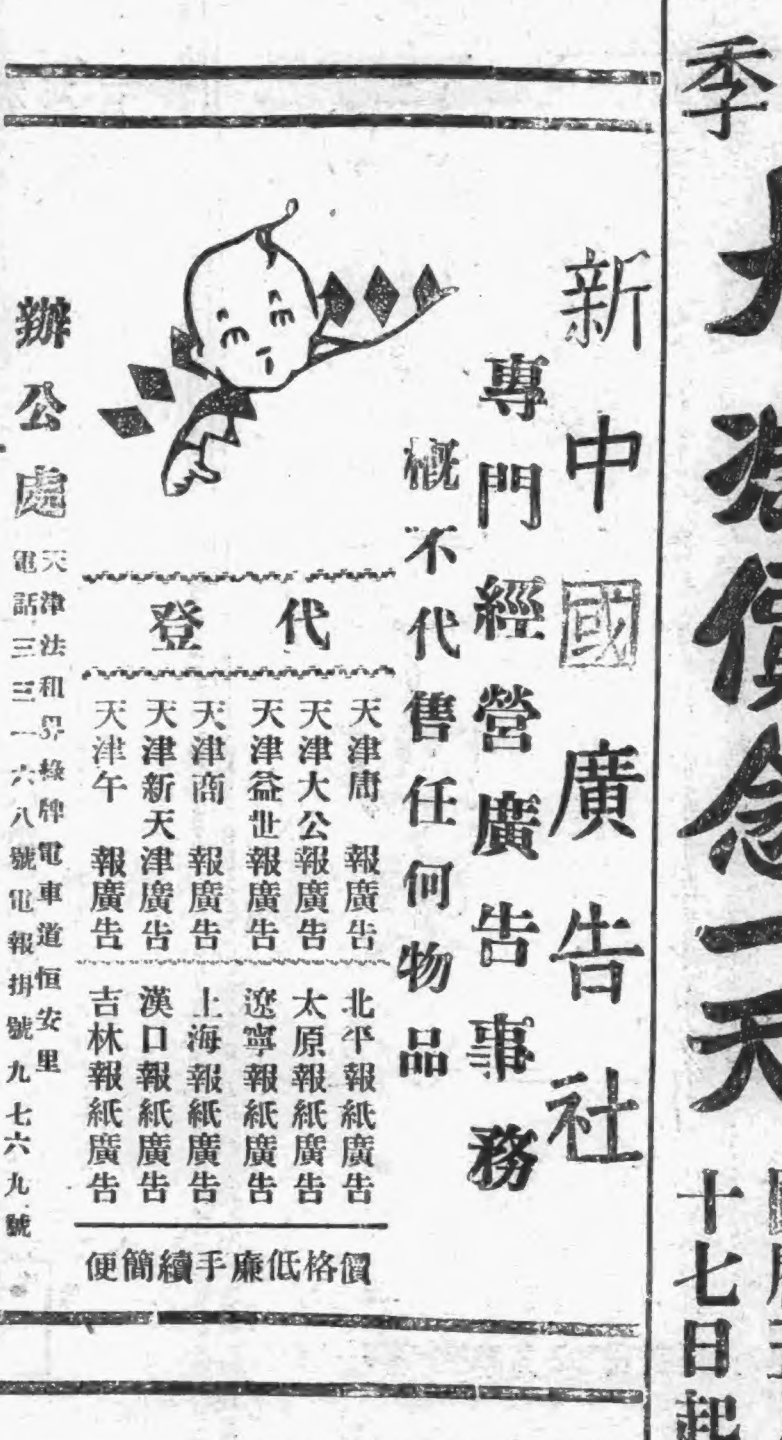 季
十七日起
新中國廣告社
專門經營廣告事務
概不代售任何物品
代登
天津庸報廣告
天津大公報廣告
天津益世報廣告
天津商報廣告
天津新天津廣告
天津午報廣告
北平報紙廣告
太原報紙廣告
遼寧報紙廣告
上海報紙廣告
漢口報紙廣告
吉林報紙廣告
價格低廉手續簡便
辦公處
天津法租界綠牌電車道恒安里
電話三三一六八號電報掛號九七六九號